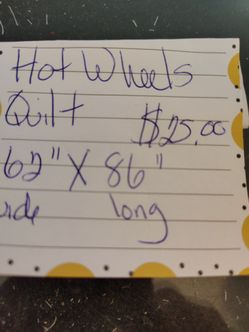 Hot Wheels
Quilt $25.00
62" X 86"
ide long